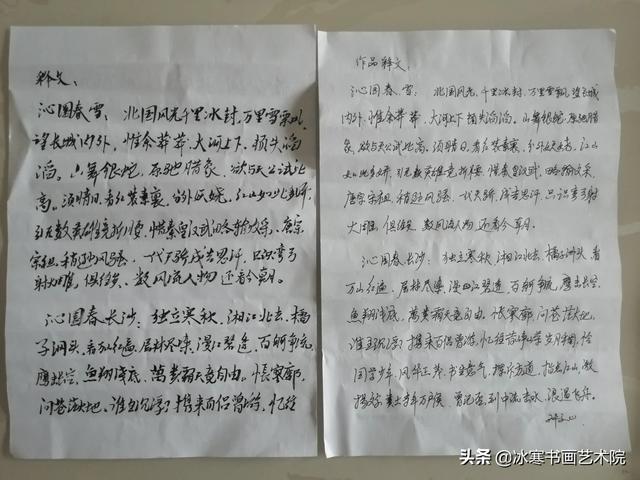 释文:
沁园春雪: 北国风光千里冰封, 万里雪飘,
望长城内外, 惟余莽莽, 大河上下, 损失滔
滔。山舞银蛇, 原驰腊象, 欲与天公试比
高。须晴日, 看红装素裹, 分外妖娆, 江山如此多娇,
引无数英雄竞折腰, 惜秦皇汉武, 略输文采, 唐宗
宋祖, 稍逊风骚, 一代天骄, 成吉思汗, 只识弯弓
射大雕, 俱往矣, 数风流人物还看今朝。
沁园春长沙: 独立寒秋, 湘江北去, 橘
子洲头, 看万山红遍, 层林尽染, 漫江碧透, 百舸争流,
鹰击长空, 鱼翔浅底, 萬类霜天竞自由。怅寥廓,
问苍茫大地, 谁主沉浮? 携来百侣曾游, 忆往
作品释文:
沁园春雪: 北国风光, 千里冰封, 万里雪飘, 望长城
内外, 惟余莽莽, 大河上下, 损失滔滔。山舞银蛇, 原驰腊
象, 欲与天公试比高。须晴日, 看红装素裹, 分外妖娆, 江山
如此多娇, 引无数英雄竞折腰, 惜秦皇汉武, 略输文采,
唐宗宋祖, 稍逊风骚, 一代天骄, 成吉思汗, 只识弯弓射
大雕, 俱往矣, 数风流人物还看今朝。
沁园春长沙: 独立寒秋, 湘江北去, 橘子洲头, 看
万山红遍, 层林尽染, 漫江碧透, 百舸争流, 鹰击长空,
鱼翔浅底, 萬类霜天竞自由, 怅寥廓, 问苍茫大地,
谁主沉浮? 携来百侣曾游, 忆往昔峥嵘岁月稠, 恰
同学少年, 风华正茂, 书生意气, 挥斥方遒, 指点江山, 激
扬文字, 粪土当年万户侯, 曾记否, 到中流击水, 浪遏飞舟。
头条 @冰寒书画艺术院